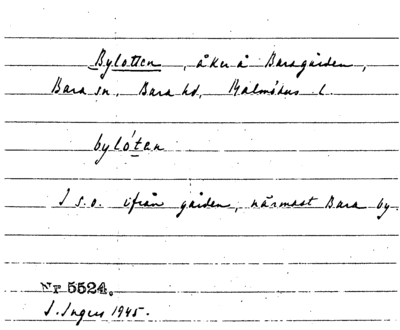 Bylotten, åker å Baragården,
Bara sn, Bara hd, Malmöhus l.
bylóten
I s.o. ifrån gården, närmast Bara by.
Nr 5524.
I. Ingers 1945.